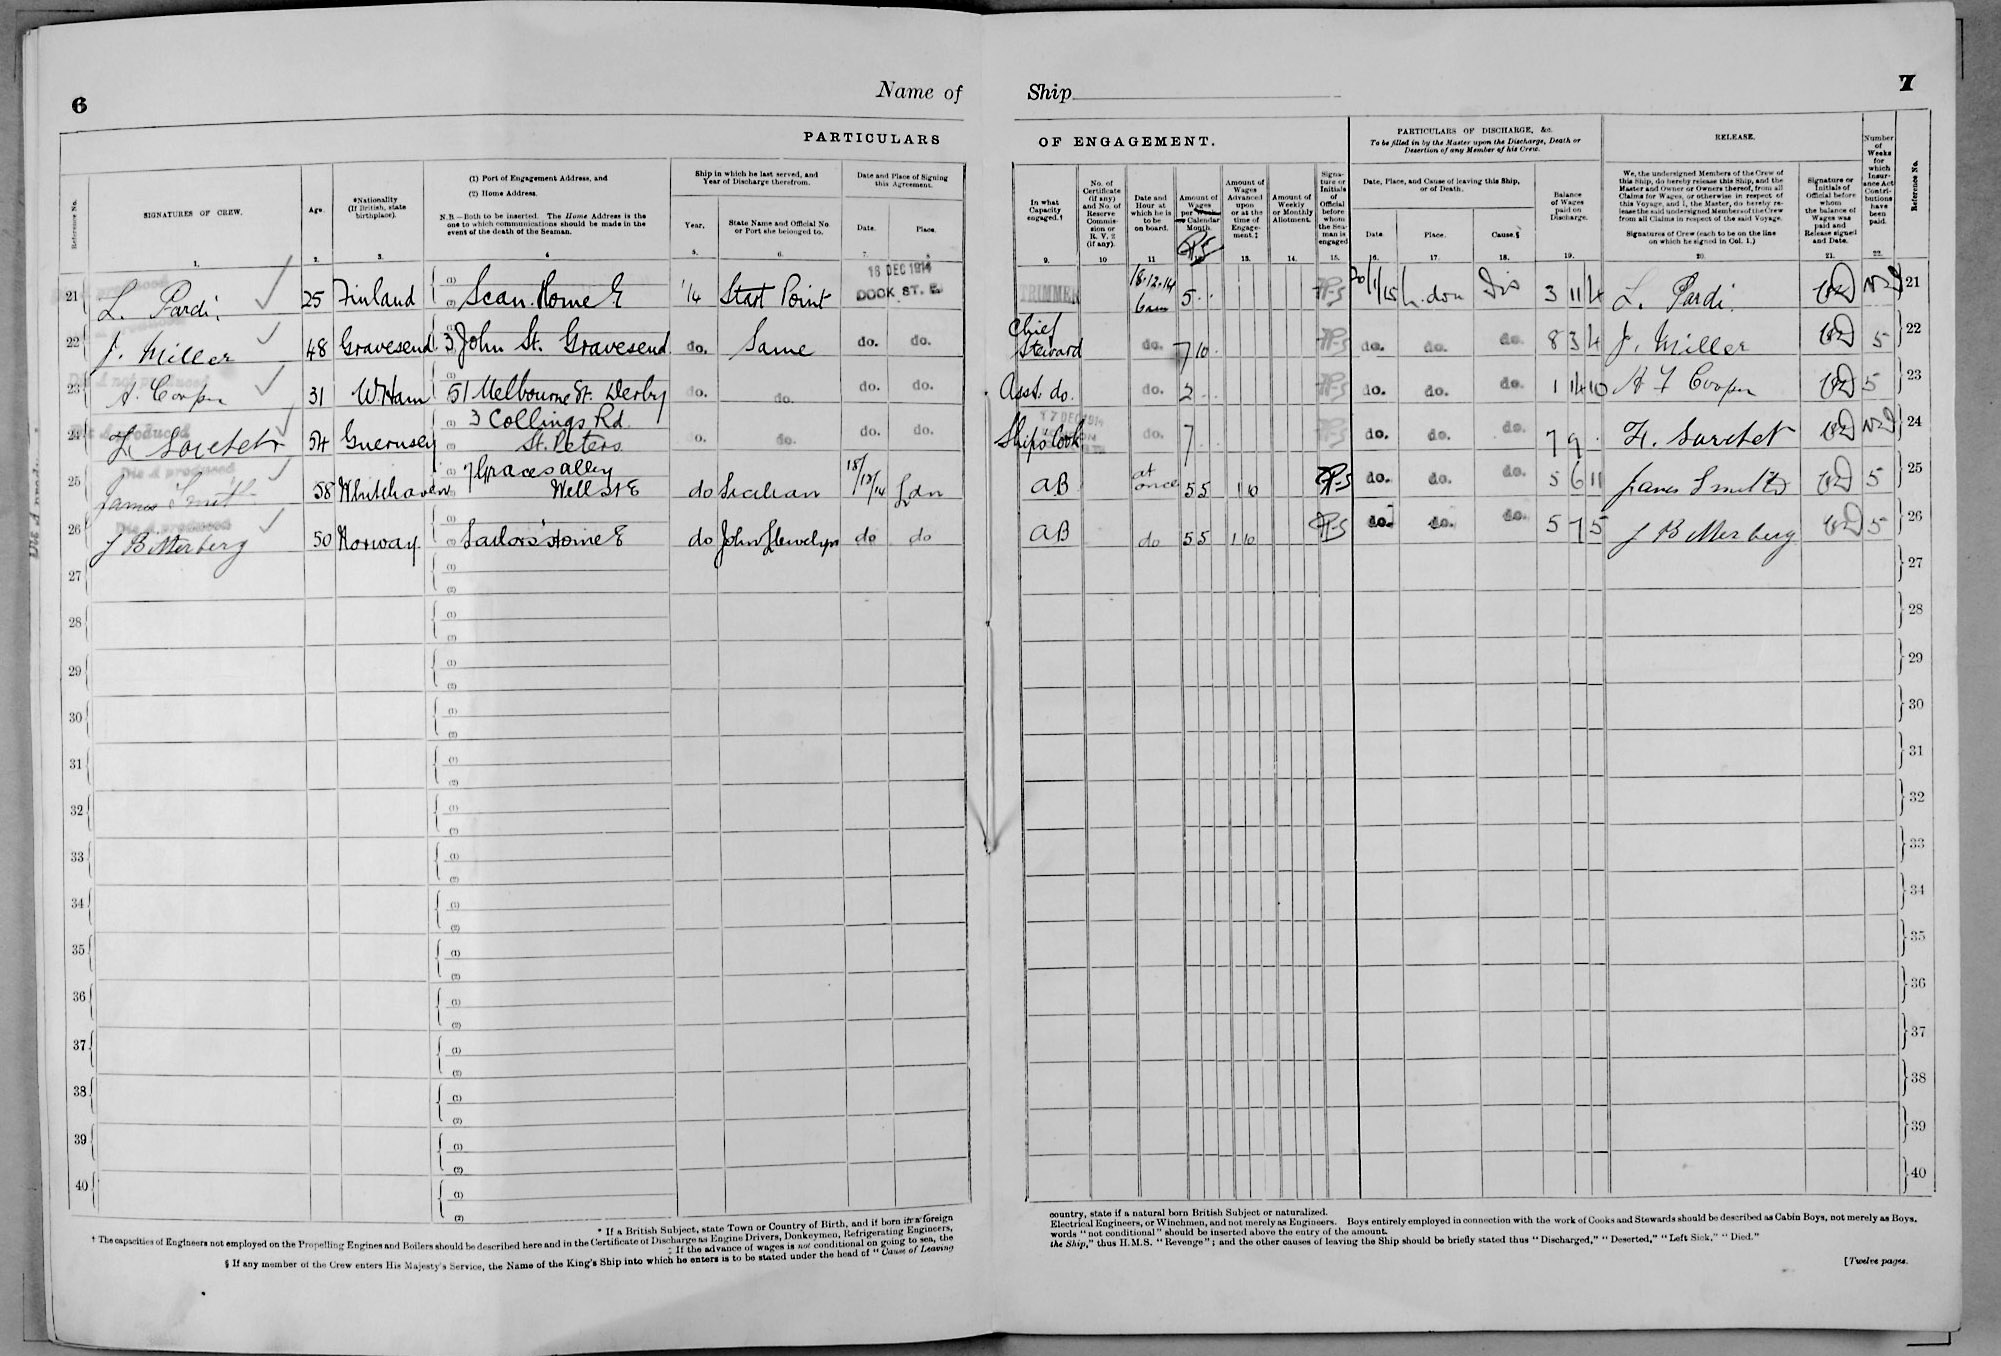 6
Name of
Ship
7
PARTICULARS
OF ENGAGEMENT.
PARTICULARS OF DISCHARGE, &c.
To be filled in by the Master upon the Discharge, Death or
Desertion of any Member of his Crew.
RELEASE.
Number of Weeks for which Insurance Act Contributions have been paid.
Reference No.
Reference No.
SIGNATURES OF CREW.
Age.
*Nationality (If British, state birthplace).
(1) Port of Engagement Address, and
(2) Home Address.
N.B.—Both to be inserted. The Home Address is the
one to which communications should be made in the
event of the death of the Seaman.
Ship in which he last served, and
Year of Discharge therefrom.
Year.
State Name and Official No.
or Port she belonged to.
Date and Place of Signing
this Agreement.
Date.
Place.
In what Capacity engaged.†
No. of Certificate (if any) and No. of Reserve Commission or R. V. 2 (if any).
Date and Hour at which he is to be on board.
Amount of Wages per Week or Calendar Month.
Amount of Wages Advanced upon or at the time of Engagement.‡
Amount of Weekly or Monthly Allotment.
Signature or Initials of Official before whom the Seaman is engaged
Date, Place, and Cause of leaving this Ship,
or of Death.
Date.
Place.
Cause.§
Balance of Wages paid on Discharge.
We, the undersigned Members of the Crew of
this Ship, do hereby release this Ship, and the
Master and Owner or Owners thereof, from all
Claims for Wages, or otherwise in respect of
this Voyage, and I, the Master, do hereby release
the said undersigned Members of the Crew
from all Claims in respect of the said Voyage.
Signatures of Crew (each to be on the line
on which he signed in Col. 1.)
Signature or Initials of Official before whom the balance of Wages was paid and Release signed and Date.
1. 2. 3. 4 5. 6. 7. 8. 9. 10 11 13. 14. 15. 16. 17. 18. 19. 20. 21. 22.
21 L. Pardi. 25 Finland Scan. Home E '14 Start Point 18 DEC 1914 DOCK ST. E. TRIMMER 18.12.14 6am 5 . . 20/1/15 L.don Dis 3 11 4 L. Pardi. 21
22 J. Miller 48 Gravesend 3 John St. Gravesend do. Same do. do. Chief Steward do. 7 10 . do. do. do. 8 3 4 J. Miller 5 22
23 A. Cooper 31 W. Ham 51 Melbourne St. Derby do. do. do. do. Asst. do. do. 2 . . do. do. do. 1 14 10 A F Cooper 5 23
24 Dis A produced 54 Guernsey 3 Collings Rd. St. Peters o. do. do. do. Ships Cook 17 DEC 1914 do. 7 . . do. do. do. 7 9 . 24
25 Dis A produced James Smith 58 Whitehaven 7 Graces alley Well St E do Sicilian 18/12/14 Ldn AB at once 5 5 1 10 do. do. do. 5 6 11 James Smith 5 25
26 Dis A produced J Bitterberg 50 Norway. Sailors' Home E do John Llewelyn do do AB do 5 5 1 10 do. do. do. 5 7 5 J Bitterberg 5 26
27 27
28 28
29 29
30 30
31 31
32 32
33 33
34 34
35 35
36 36
37 37
38 38
39 39
40 40
* If a British Subject, state Town or Country of Birth, and if born in a foreign
country, state if a natural born British Subject or naturalized.
† The capacities of Engineers not employed on the Propelling Engines and Boilers should be described here and in the Certificate of Discharge as Engine Drivers, Donkeymen, Refrigerating Engineers,
Electrical Engineers, or Winchmen, and not merely as Engineers. Boys entirely employed in connection with the work of Cooks and Stewards should be described as Cabin Boys, not merely as Boys.
‡ If the advance of wages is not conditional on going to sea, the
words "not conditional" should be inserted above the entry of the amount.
§ If any member of the Crew enters His Majesty's Service, the Name of the King's Ship into which he enters is to be stated under the head of "Cause of Leaving
the Ship," thus H.M.S. "Revenge"; and the other causes of leaving the Ship should be briefly stated thus "Discharged," "Deserted," "Left Sick," "Died."
[Twelve pages.